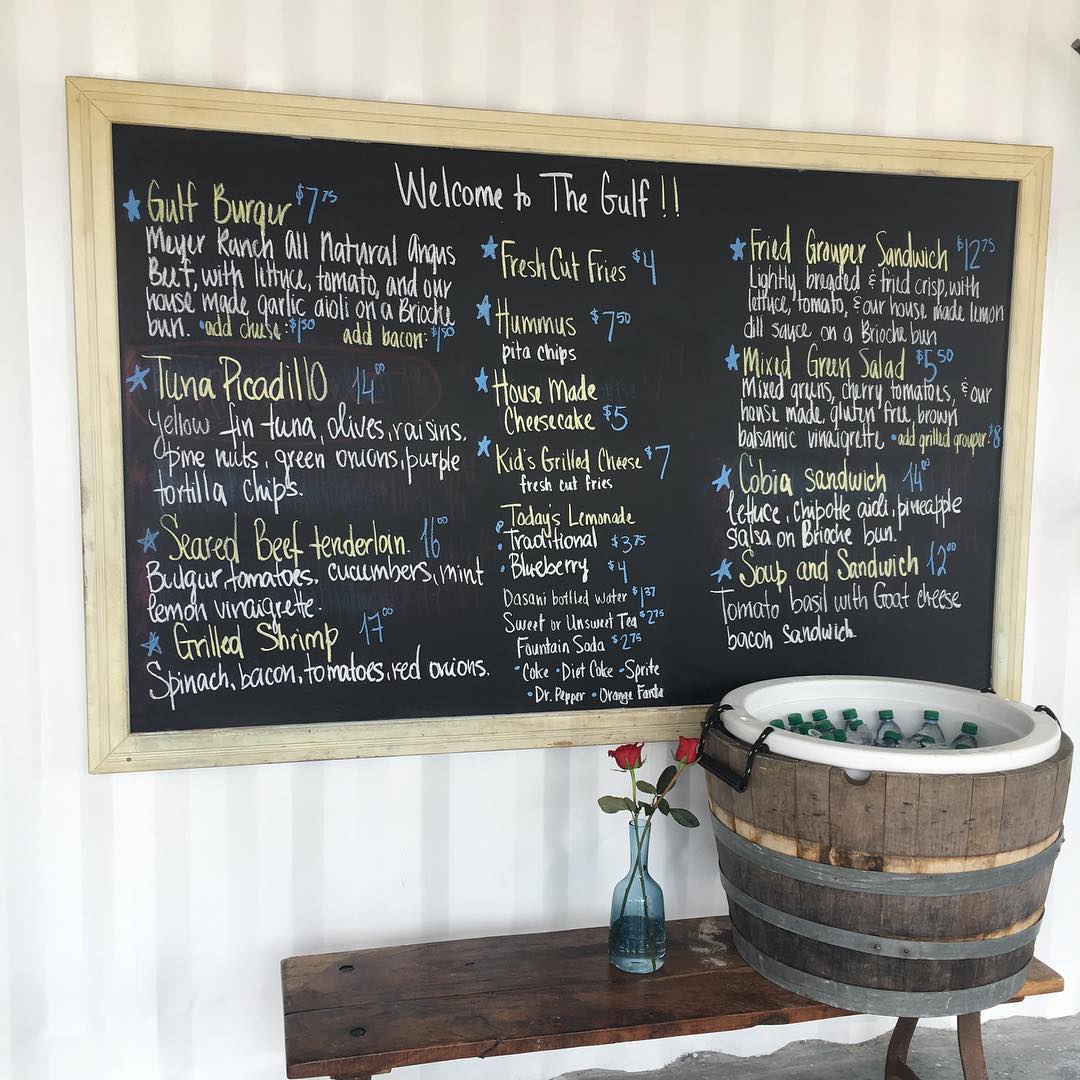 Welcome to The Gulf!!
Gulf Burger $7.75
Meyer Ranch All Natural Angus
Beef, with lettuce, tomato, and our
house made garlic aioli on a Brioche
bun. •add cheese: $1.50 add bacon: $1.50
Tuna Picadillo 14.00
yellow fin tuna, olives, raisins,
pine nuts, green onions, purple
tortilla chips.
Seared Beef tenderloin. 16.00
Bulgur, tomatoes, cucumbers, mint
lemon vinaigrette.
Grilled Shrimp 17.00
Spinach, bacon, tomatoes, red onions.
Fresh Cut Fries $4
Hummus $7.50
pita chips
House Made
Cheesecake $5
Kid's Grilled Cheese $7
fresh cut fries
Today's Lemonade
• Traditional $3.75
• Blueberry $4
Dasani bottled water $1.37
Sweet or Unsweet Tea $2.75
Fountain Soda $2.75
•Coke •Diet Coke •Sprite
•Dr. Pepper •Orange Fanta
Fried Grouper Sandwich $12.75
Lightly breaded & fried crisp, with
lettuce, tomato, & our house made lemon
dill sauce on a Brioche bun
Mixed Green Salad $5.50
Mixed greens, cherry tomatoes, & our
house made, gluten free, brown
balsamic vinaigrette •add grilled grouper: $8
Cobia Sandwich 14.00
lettuce, chipotle aioli, pineapple
salsa on Brioche bun.
Soup and Sandwich 12.00
Tomato basil with Goat cheese
bacon Sandwich